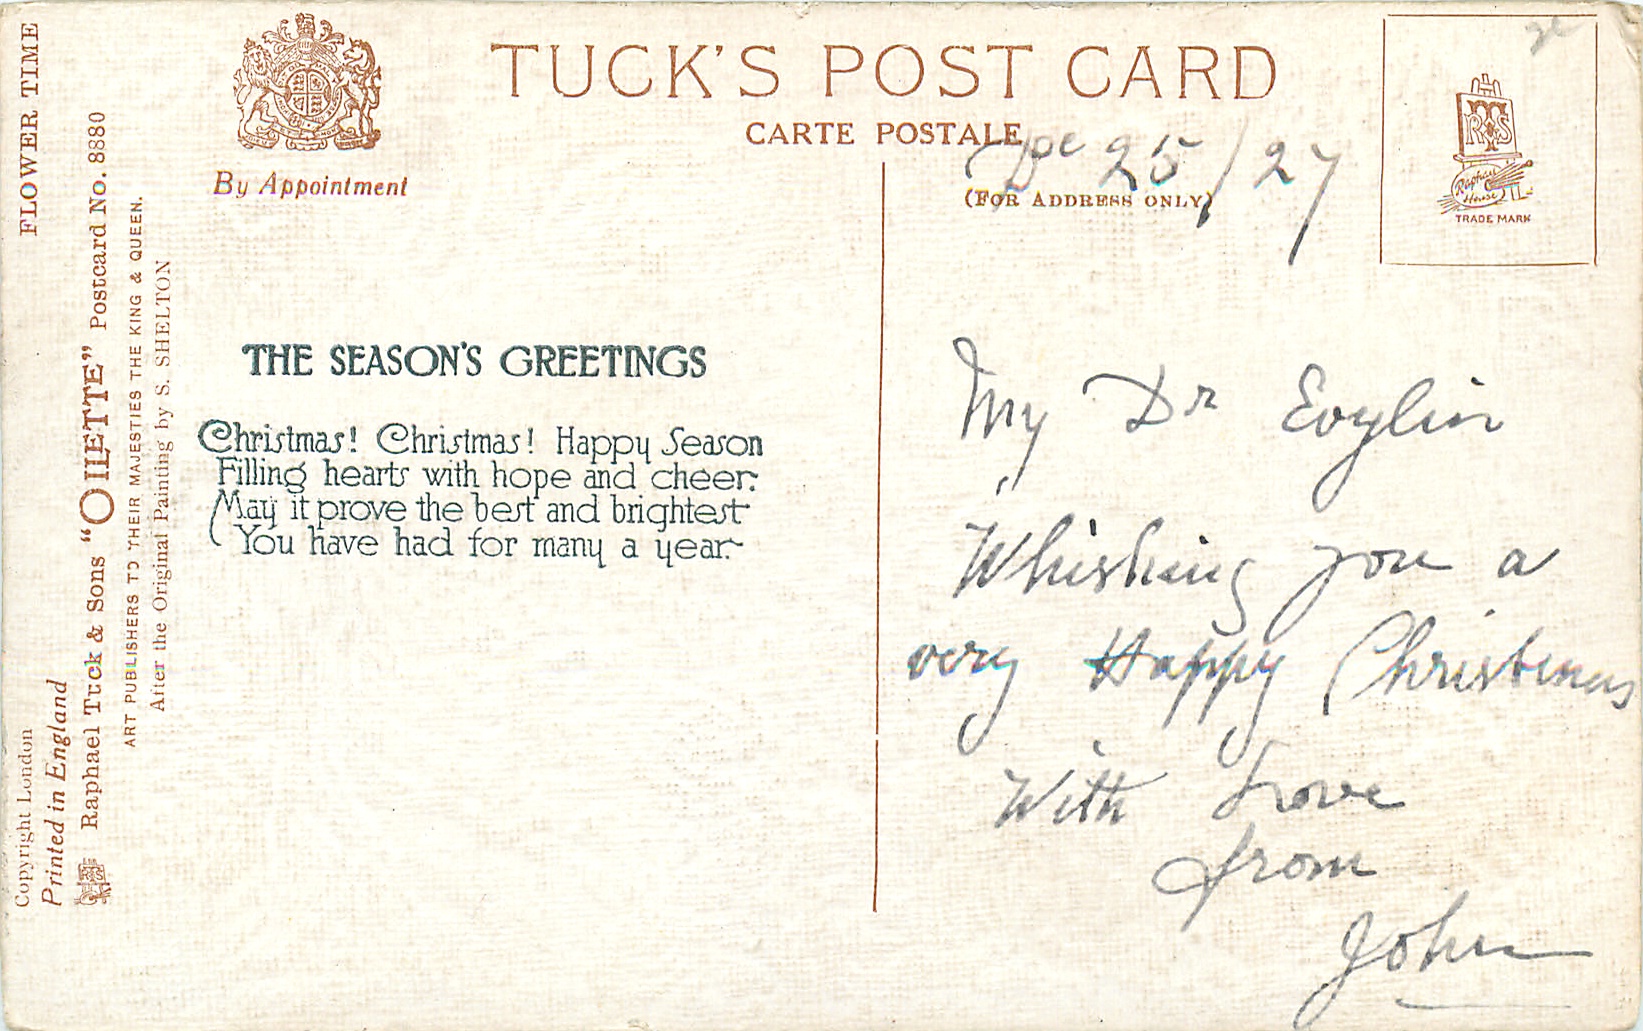 FLOWER TIME
Copyright London
Printed in England
Raphael Tuck & Sons "OILETTE" Postcard No. 8880
ART PUBLISHERS TO THEIR MAJESTIES THE KING & QUEEN.
After the Original Painting by S. SHELTON
By Appointment
TUCK'S POST CARD
CARTE POSTALE
(FOR ADDRESS ONLY)
THE SEASON'S GREETINGS
Christmas! Christmas! Happy Season
Filling hearts with hope and cheer:
May it prove the best and brightest
You have had for many a year.
De 25/27
My Dr Evylin
Whishing you a
very Happy Christmas
With Love
from
John
RTS
Raphael
House
TRADE MARK